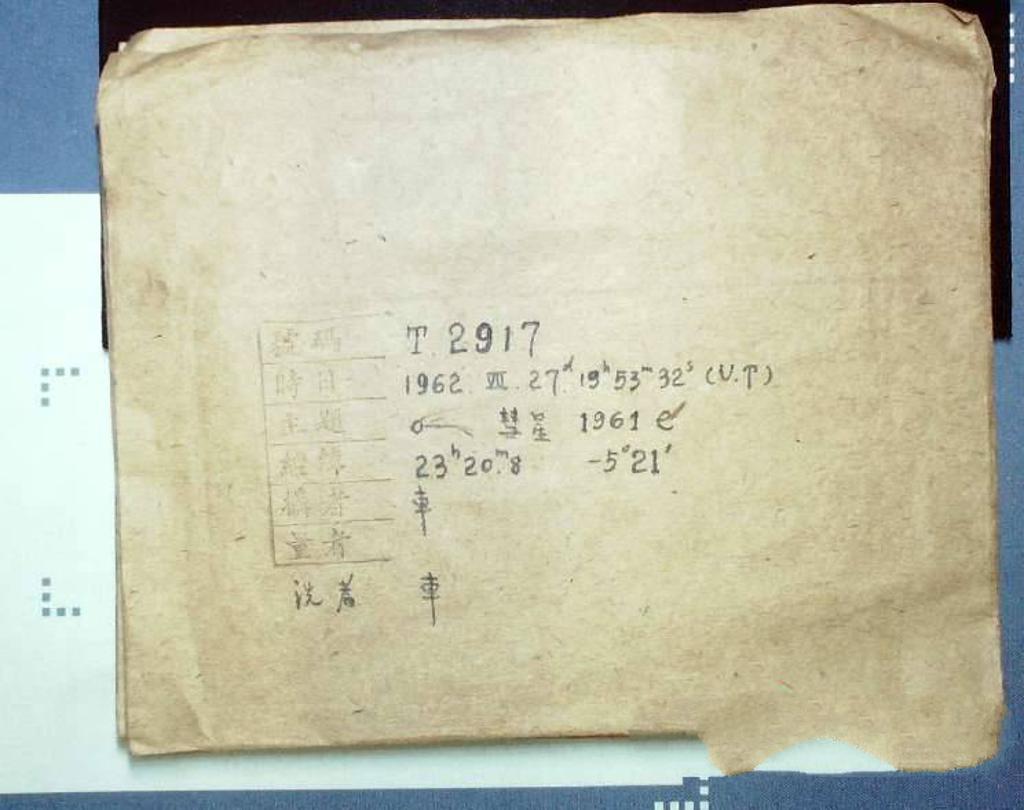 號碼 T 2917
時日 1962 VII. 27ᵈ 19ʰ 53ᵐ 32ˢ (U.T)
主題 彗星 1961 e
經緯 23ʰ20ᵐ.8 -5°21′
攝者 車
量者
洗者 車